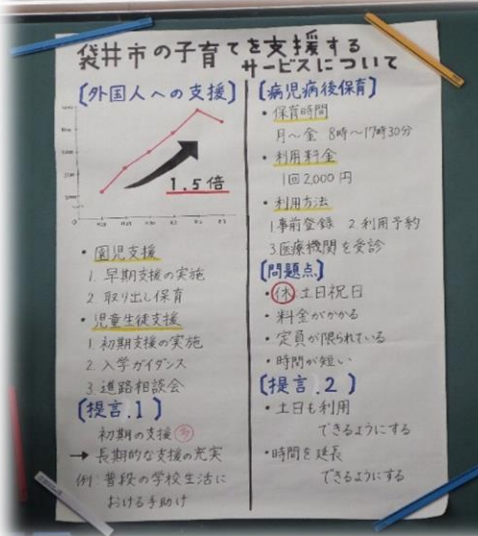 袋井市の子育てを支援する
サービスについて
[外国人への支援]
1.5倍
・園児支援
1. 早期支援の実施
2. 取り出し保育
・児童生徒支援
1. 初期支援の実施
2. 入学ガイダンス
3. 進路相談会
[提言.1]
初期の支援 多
→ 長期的な支援の充実
例: 普段の学校生活に
おける手助け
[病児病後保育]
・保育時間
月～金 8時～17時30分
・利用料金
1回2,000円
・利用方法
1事前登録 2利用予約
3.医療機関を受診
[問題点]
・休 土日祝日
・料金がかかる
・定員が限られている
・時間が短い
[提言.2]
・土日も利用
できるようにする
・時間を延長
できるようにする